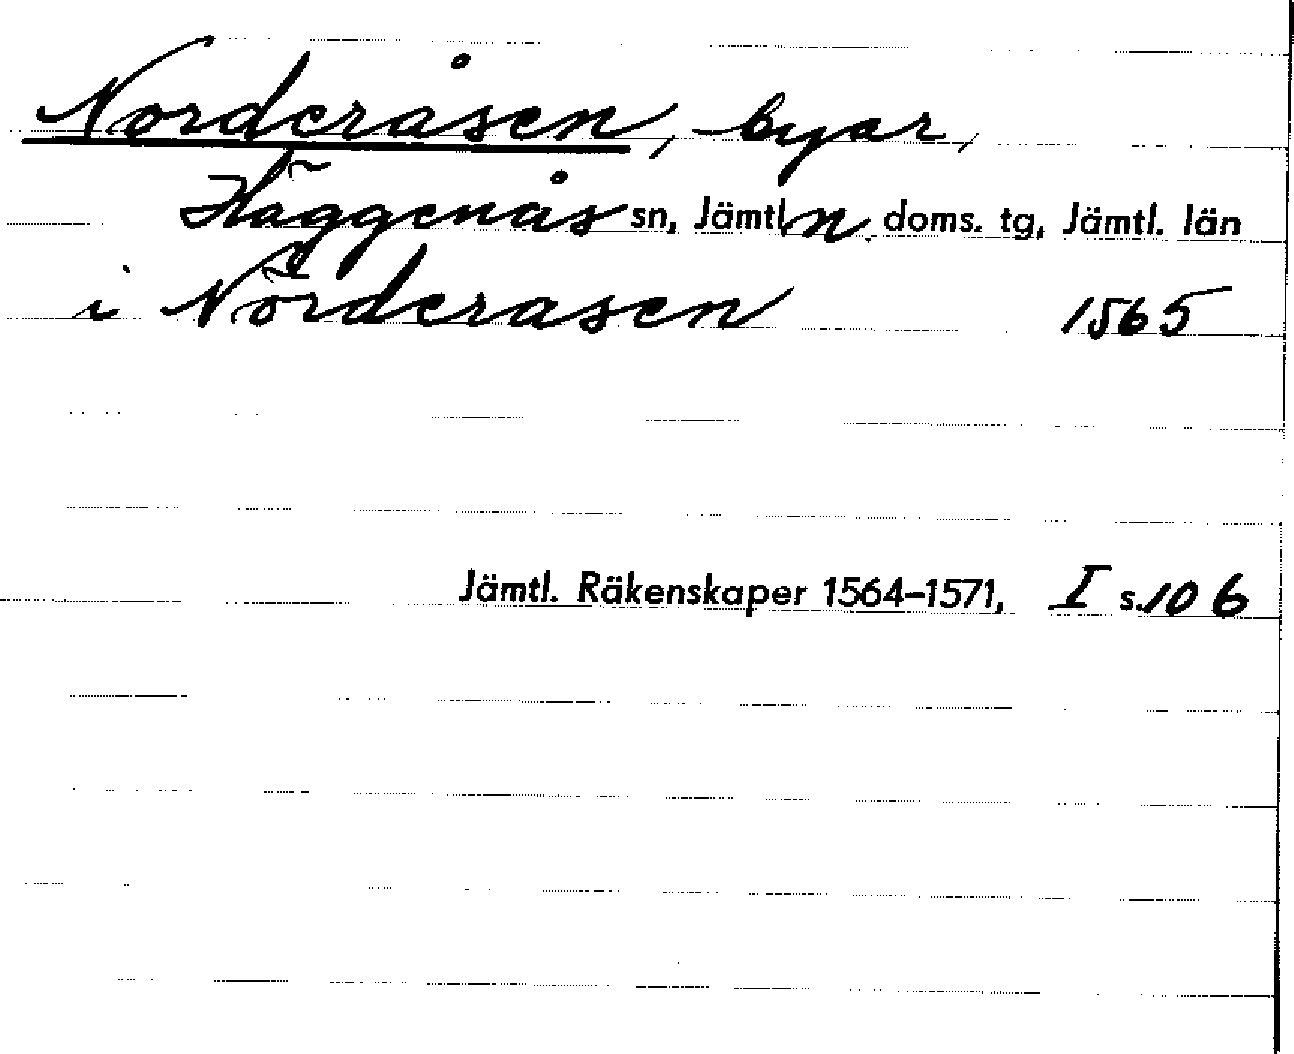 Norderåsen, byar,
Häggenås sn, Jämtl n. doms. tg, Jämtl. län
i Nörderasen 1565
Jämtl. Räkenskaper 1564-1571, I s. 106